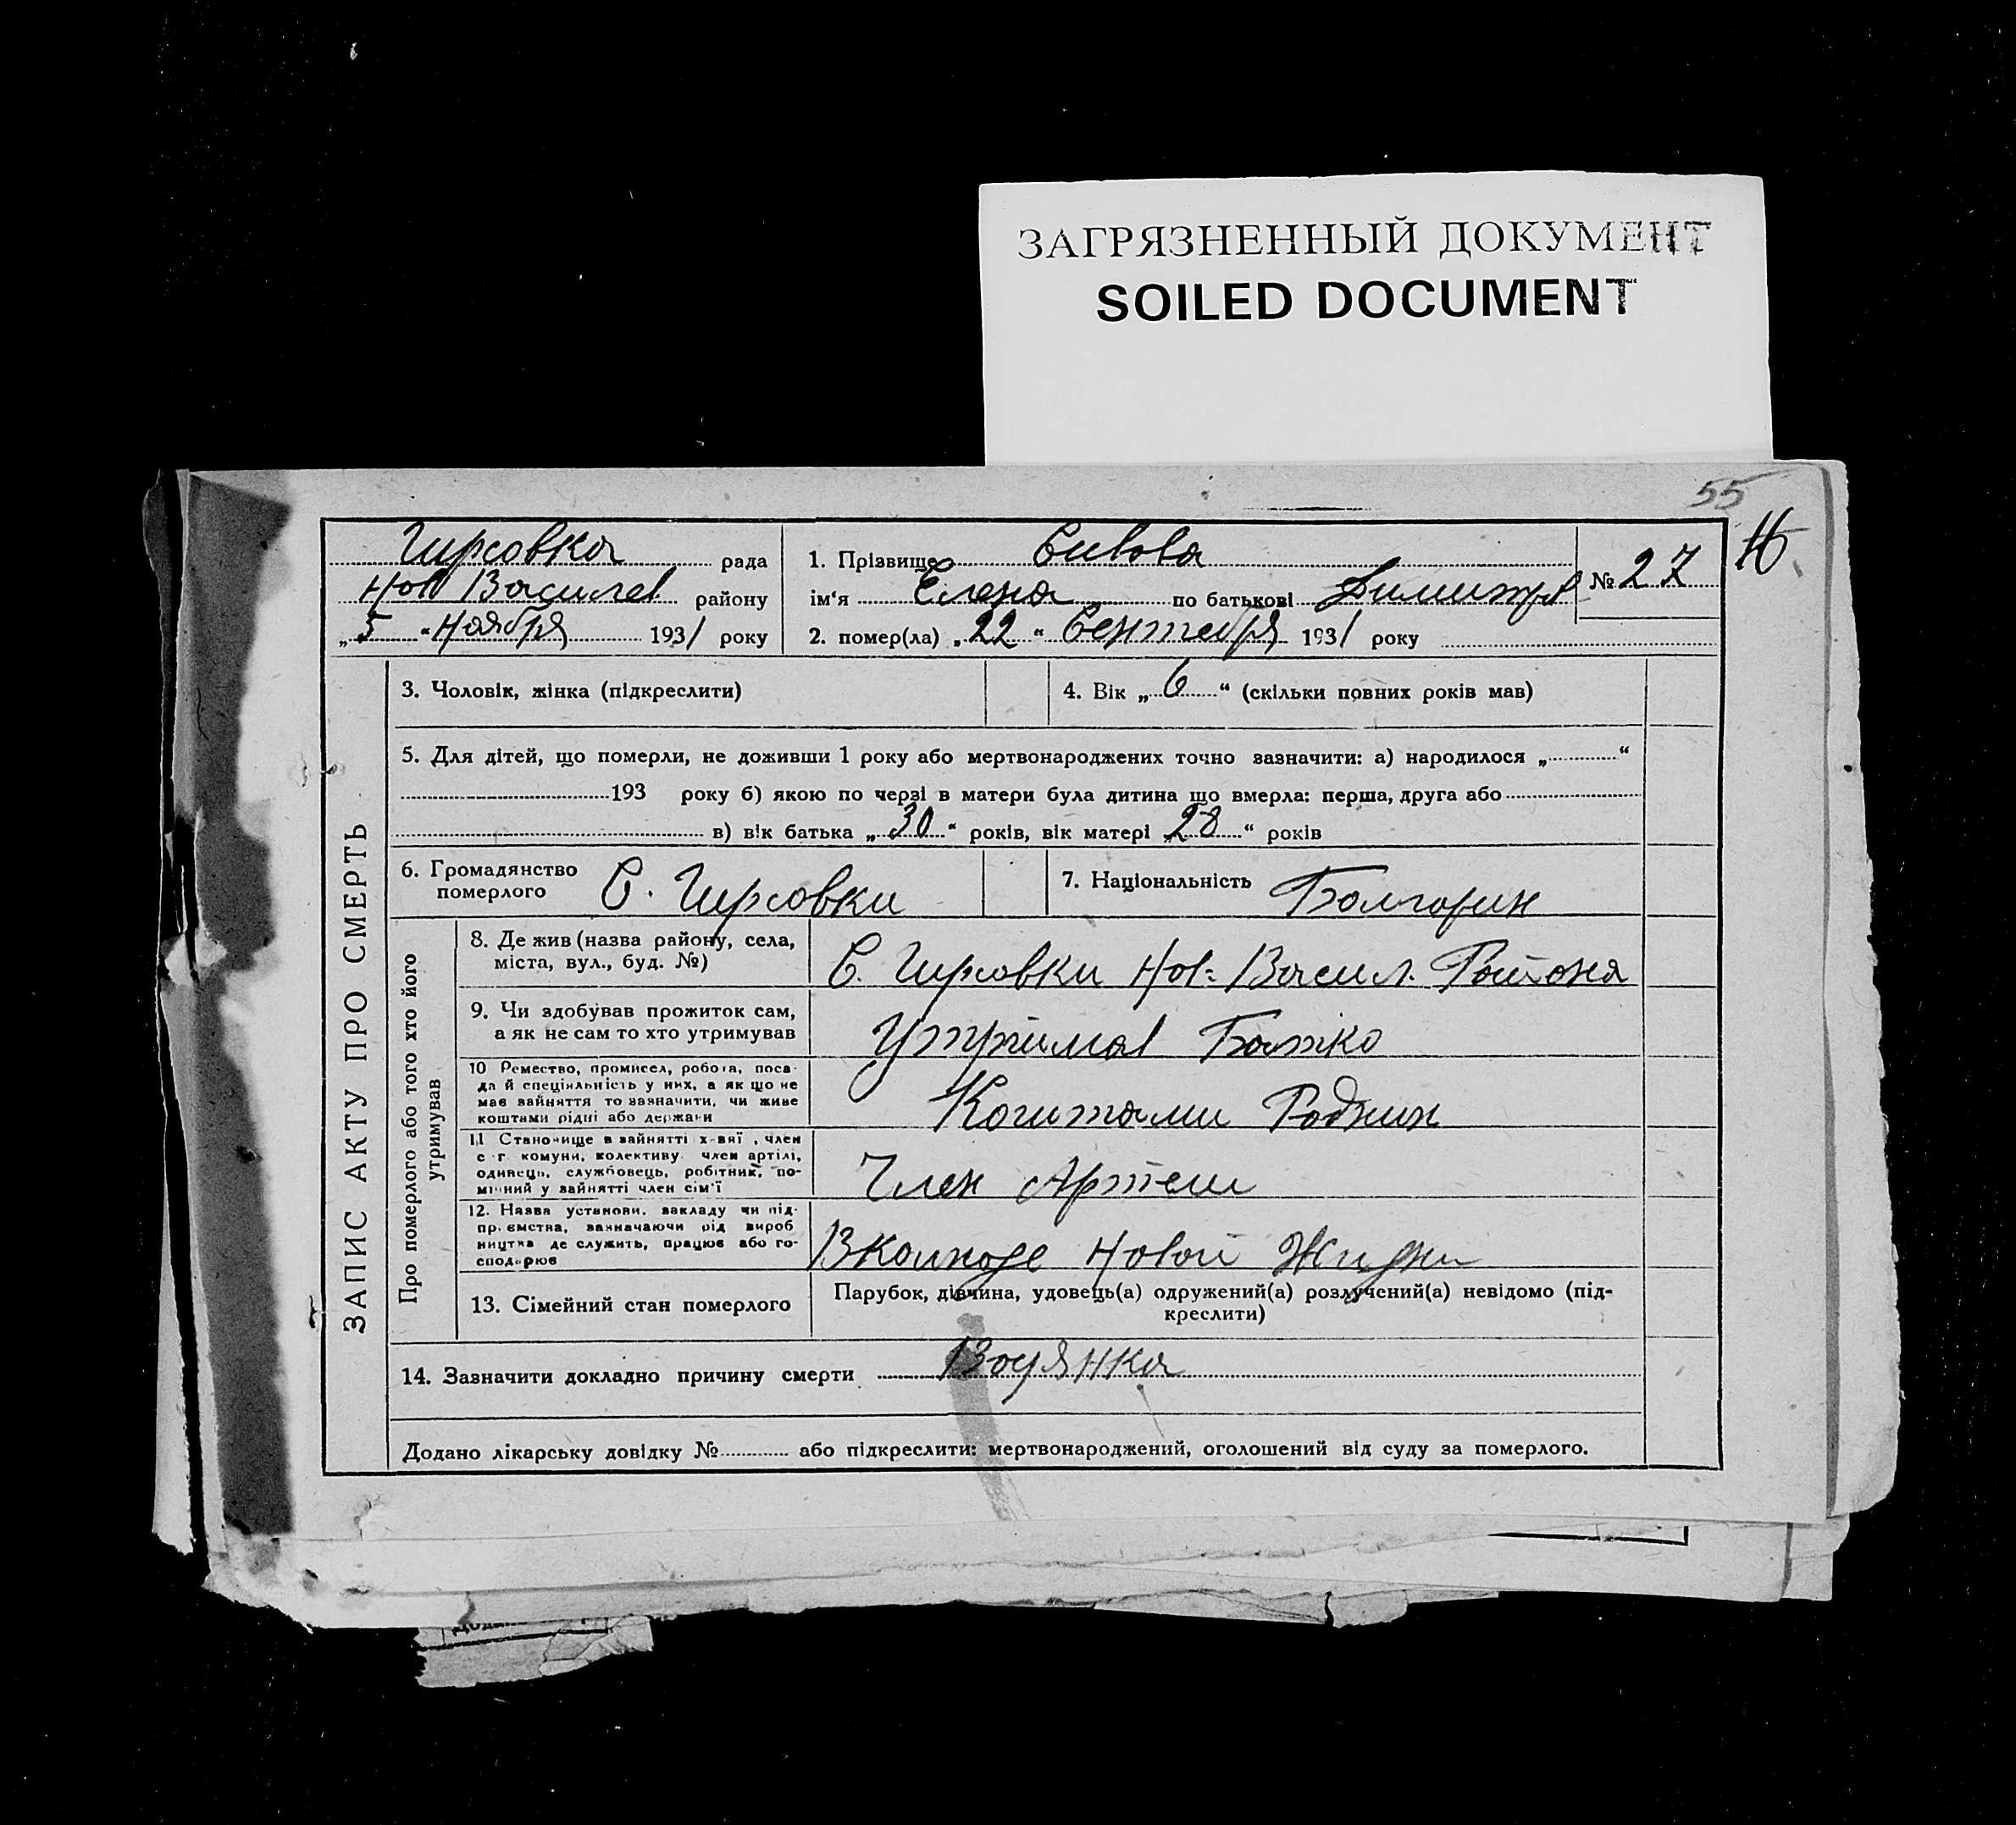 ЗАГРЯЗНЕННЫЙ ДОКУМЕНТ
SOILED DOCUMENT
55
Н.
Гирсовка рада
Нов Василев району
„5“ Ноября 1931 року
1. Прізвище Сивова
ім‘я Елена по батькові Димитр
№ 27
2. помер(ла) „22“ Сентебря 1931 року
ЗАПИС АКТУ ПРО СМЕРТЬ
3. Чоловік, жінка (підкреслити)
4. Вік „6“ (скільки повних років мав)
5. Для дітей, що померли, не доживши 1 року або мертвонароджених точно зазначити: а) народилося „ “
193 року б) якою по черзі в матери була дитина що вмерла: перша, друга або
в) вік батька „30“ років, вік матері „28“ років
6. Громадянство померлого С. Гирсовки
7. Національність Болгорин
Про померлого або того хто його утримував
8. Де жив (назва району, села, міста, вул., буд. №)
С. Гирсовки Нов-Васил. Района
9. Чи здобував прожиток сам, а як не сам то хто утримував
Утримав Батко
10 Ремество, промисел, робота, поса-
да й спеціяльність у них, а як що не
має зайняття то зазначити, чи живе
коштами рідні або держави
Коштами Роднин
11 Становище в зайнятті х-вяї, член
с-г комуни, колективу член артілі,
одинець, службовець, робітник, по-
мічний у зайнятті член сім'ї
Член Артели
12. Назва установи, закладу чи під-
пр. ємства, зазначаючи рід вироб
ництва де служить, працює або го-
сподарює
В Колхозе Новой Жизни
13. Сімейний стан померлого
Парубок, дівчина, удовець(а) одружений(а) розлучений(а) невідомо (під-
креслити)
14. Зазначити докладно причину смерти Водянка
Додано лікарську довідку № або підкреслити: мертвонароджений, оголошений від суду за померлого.